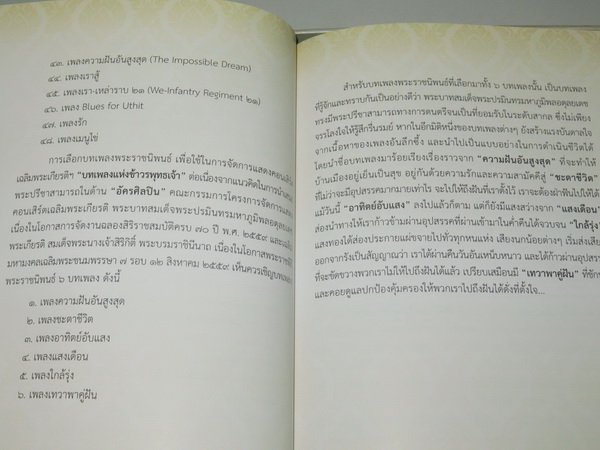 ๔๓. เพลงความฝันอันสูงสุด (The Impossible Dream)
๔๔. เพลงเราสู้
๔๕. เพลงเรา-เหล่าราบ ๒๑ (We-Infantry Regiment ๒๑)
๔๖. เพลง Blues for Uthit
๔๗. เพลงรัก
๔๘. เพลงเมนูไข่
การเลือกบทเพลงพระราชนิพนธ์ เพื่อใช้ในการจัดการแสดงคอนเสิร์ต
เฉลิมพระเกียรติฯ "บทเพลงแห่งข้าวรพุทธเจ้า" ต่อเนื่องจากแนวคิดในการนำเสนอ
พระปรีชาสามารถในด้าน "อัครศิลปิน" คณะกรรมการโครงการจัดการแสดง
คอนเสิร์ตเฉลิมพระเกียรติ พระบาทสมเด็จพระปรมินทรมหาภูมิพลอดุลยเดช
เนื่องในโอกาสการจัดงานฉลองสิริราชสมบัติครบ ๗๐ ปี พ.ศ. ๒๕๕๙ และเฉลิม
พระเกียรติ สมเด็จพระนางเจ้าสิริกิติ์ พระบรมราชินีนาถ เนื่องในโอกาสพระราชพิธี
มหามงคลเฉลิมพระชนมพรรษา ๗ รอบ ๑๒ สิงหาคม ๒๕๕๙ เห็นควรเชิญบทเพลง
พระราชนิพนธ์ ๖ บทเพลง ดังนี้
๑. เพลงความฝันอันสูงสุด
๒. เพลงชะตาชีวิต
๓. เพลงอาทิตย์อับแสง
๔. เพลงแสงเดือน
๕. เพลงใกล้รุ่ง
๖. เพลงเทวาพาคู่ฝัน
สำหรับบทเพลงพระราชนิพนธ์ที่เลือกมาทั้ง ๖ บทเพลงนั้น เป็นบทเพลง
ที่รู้จักและทราบกันเป็นอย่างดีว่า พระบาทสมเด็จพระปรมินทรมหาภูมิพลอดุลยเดช
ทรงมีพระปรีชาสามารถทางการดนตรีจนเป็นที่ยอมรับในระดับสากล ซึ่งไม่เพียง
จรรโลงใจให้รู้สึกรื่นรมย์ หากในอีกมิติหนึ่งของบทเพลงต่างๆ ยังสร้างแรงบันดาลใจ
จากเนื้อหาของเพลงอันลึกซึ้ง และนำไปเป็นแบบอย่างในการดำเนินชีวิตได้
โดยนำชื่อบทเพลงมาร้อยเรียงเรื่องราวจาก "ความฝันอันสูงสุด" ที่จะทำให้
บ้านเมืองอยู่เย็นเป็นสุข อยู่กันด้วยความรักและความสามัคคีสู่ "ชะตาชีวิต"
ที่ไม่ว่าจะมีอุปสรรคมากมายเท่าไร จะไปให้ถึงฝันที่เราตั้งไว้ เราจะต้องฝ่าฟันไปให้ได้
แม้วันนี้ "อาทิตย์อับแสง" ลงไปแล้วก็ตาม แต่ก็ยังมีแสงสว่างจาก "แสงเดือน"
ส่องนำทางให้เราก้าวข้ามผ่านอุปสรรคที่ผ่านเข้ามาในค่ำคืนได้จวบจน "ใกล้รุ่ง"
แสงทองได้ส่องประกายแผ่ขจายไปทั่วทุกหนแห่ง เสียงนกน้อยต่างๆ เริ่มส่งเสียง
ออกจากรังเป็นสัญญาณว่า เราได้ผ่านคืนวันอันเหน็บหนาว และได้ก้าวผ่านอุปสรรค
ที่จะขัดขวางพวกเราไม่ให้ไปถึงฝันได้แล้ว เปรียบเสมือนมี "เทวาพาคู่ฝัน"
และคอยดูแลปกป้องคุ้มครองให้พวกเราไปถึงฝันได้ดั่งที่ตั้งใจ...